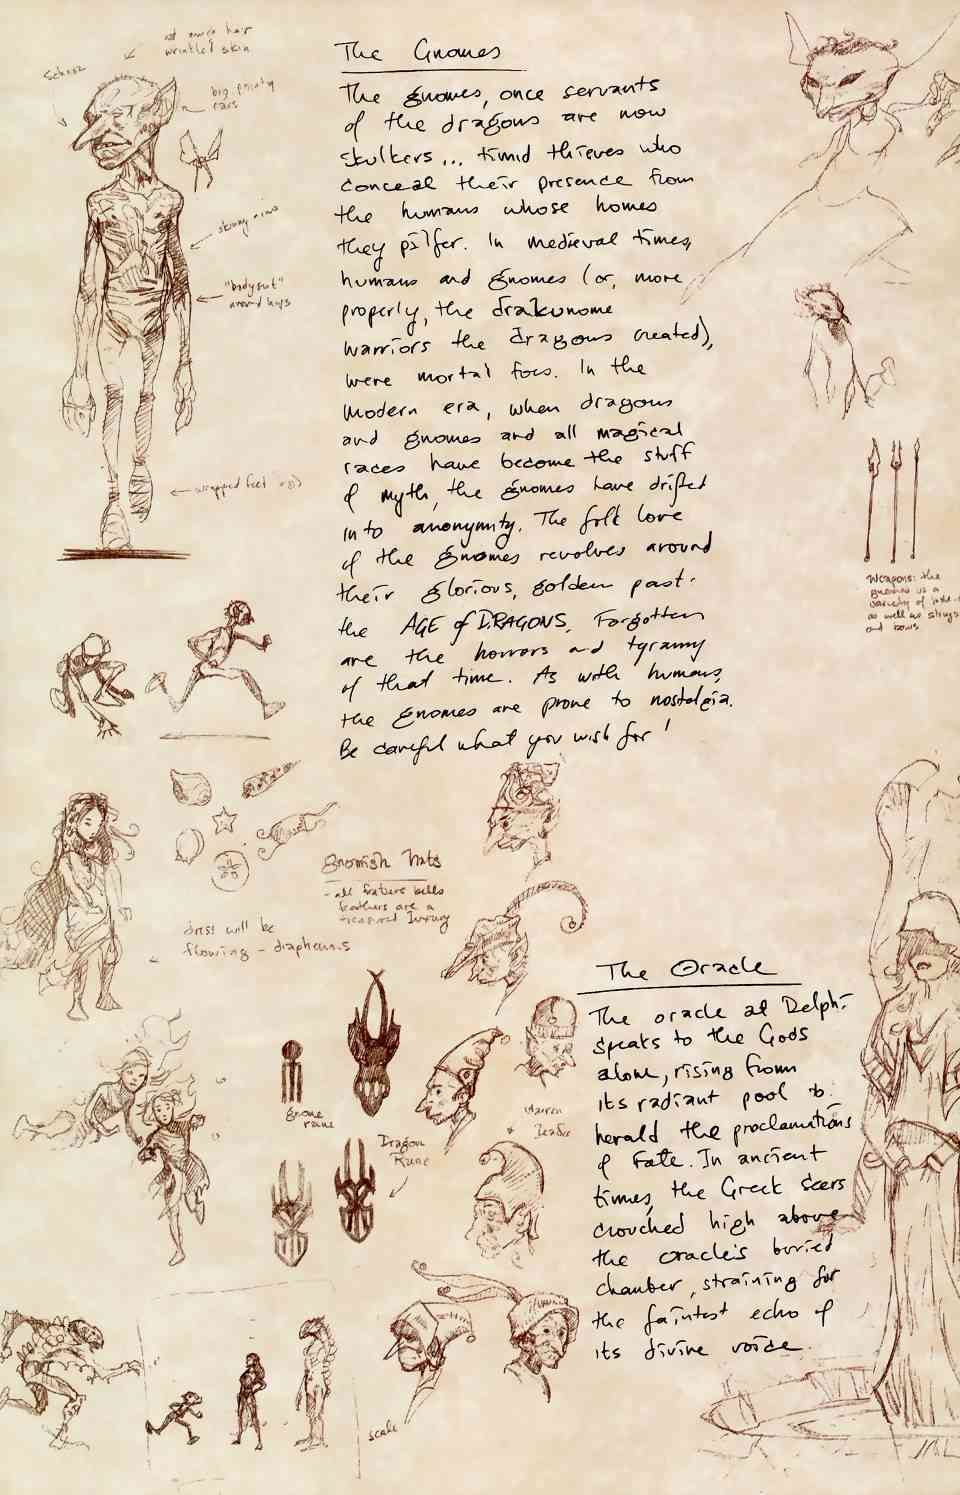 not much hair
wrinkled skin
big pointy
ears
skinny arms
"bodysuit"
around hips
wrapped feet
The Gnomes
The gnomes, once servants
of the dragons are now
skulkers... timid thieves who
conceal their presence from
the humans whose homes
they pilfer. In medieval times,
humans and gnomes (or, more
properly, the drakunome
warriors the dragons created),
were mortal foes. In the
modern era, when dragons
and gnomes and all magical
races have become the stuff
of myth, the gnomes have drifted
into anonymity. The folk lore
of the gnomes revolves around
their glorious, golden past.
the AGE of DRAGONS. Forgotten
are the horrors and tyranny
of that time. As with humans,
the gnomes are prone to nostalgia.
Be careful what you wish for!
Weapons: the
gnomes use a
variety of
as well as slings
and bows
gnomish hats
- all feature bells
feathers are a
treasured luxury
dress will be
flowing - diaphenous
gnome
rune
Dragon
Rune
leader
The Oracle
The oracle at Delphi
speaks to the Gods
alone, rising from
its radiant pool to
herald the proclamations
of Fate. In ancient
times, the Greek seers
crouched high above
the oracle's buried
chamber, straining for
the faintest echo of
its divine voice.
scale